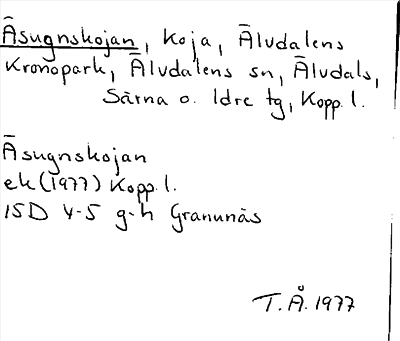 Åsugnskojan, Koja, Älvdalens
Kronopark, Älvdalens sn, Älvdals,
Särna o. Idre tg, Kopp. l.
Åsugnskojan
ek (1977) Kopp. l.
15D 4-5 g-h Granunäs
T. Å. 1977